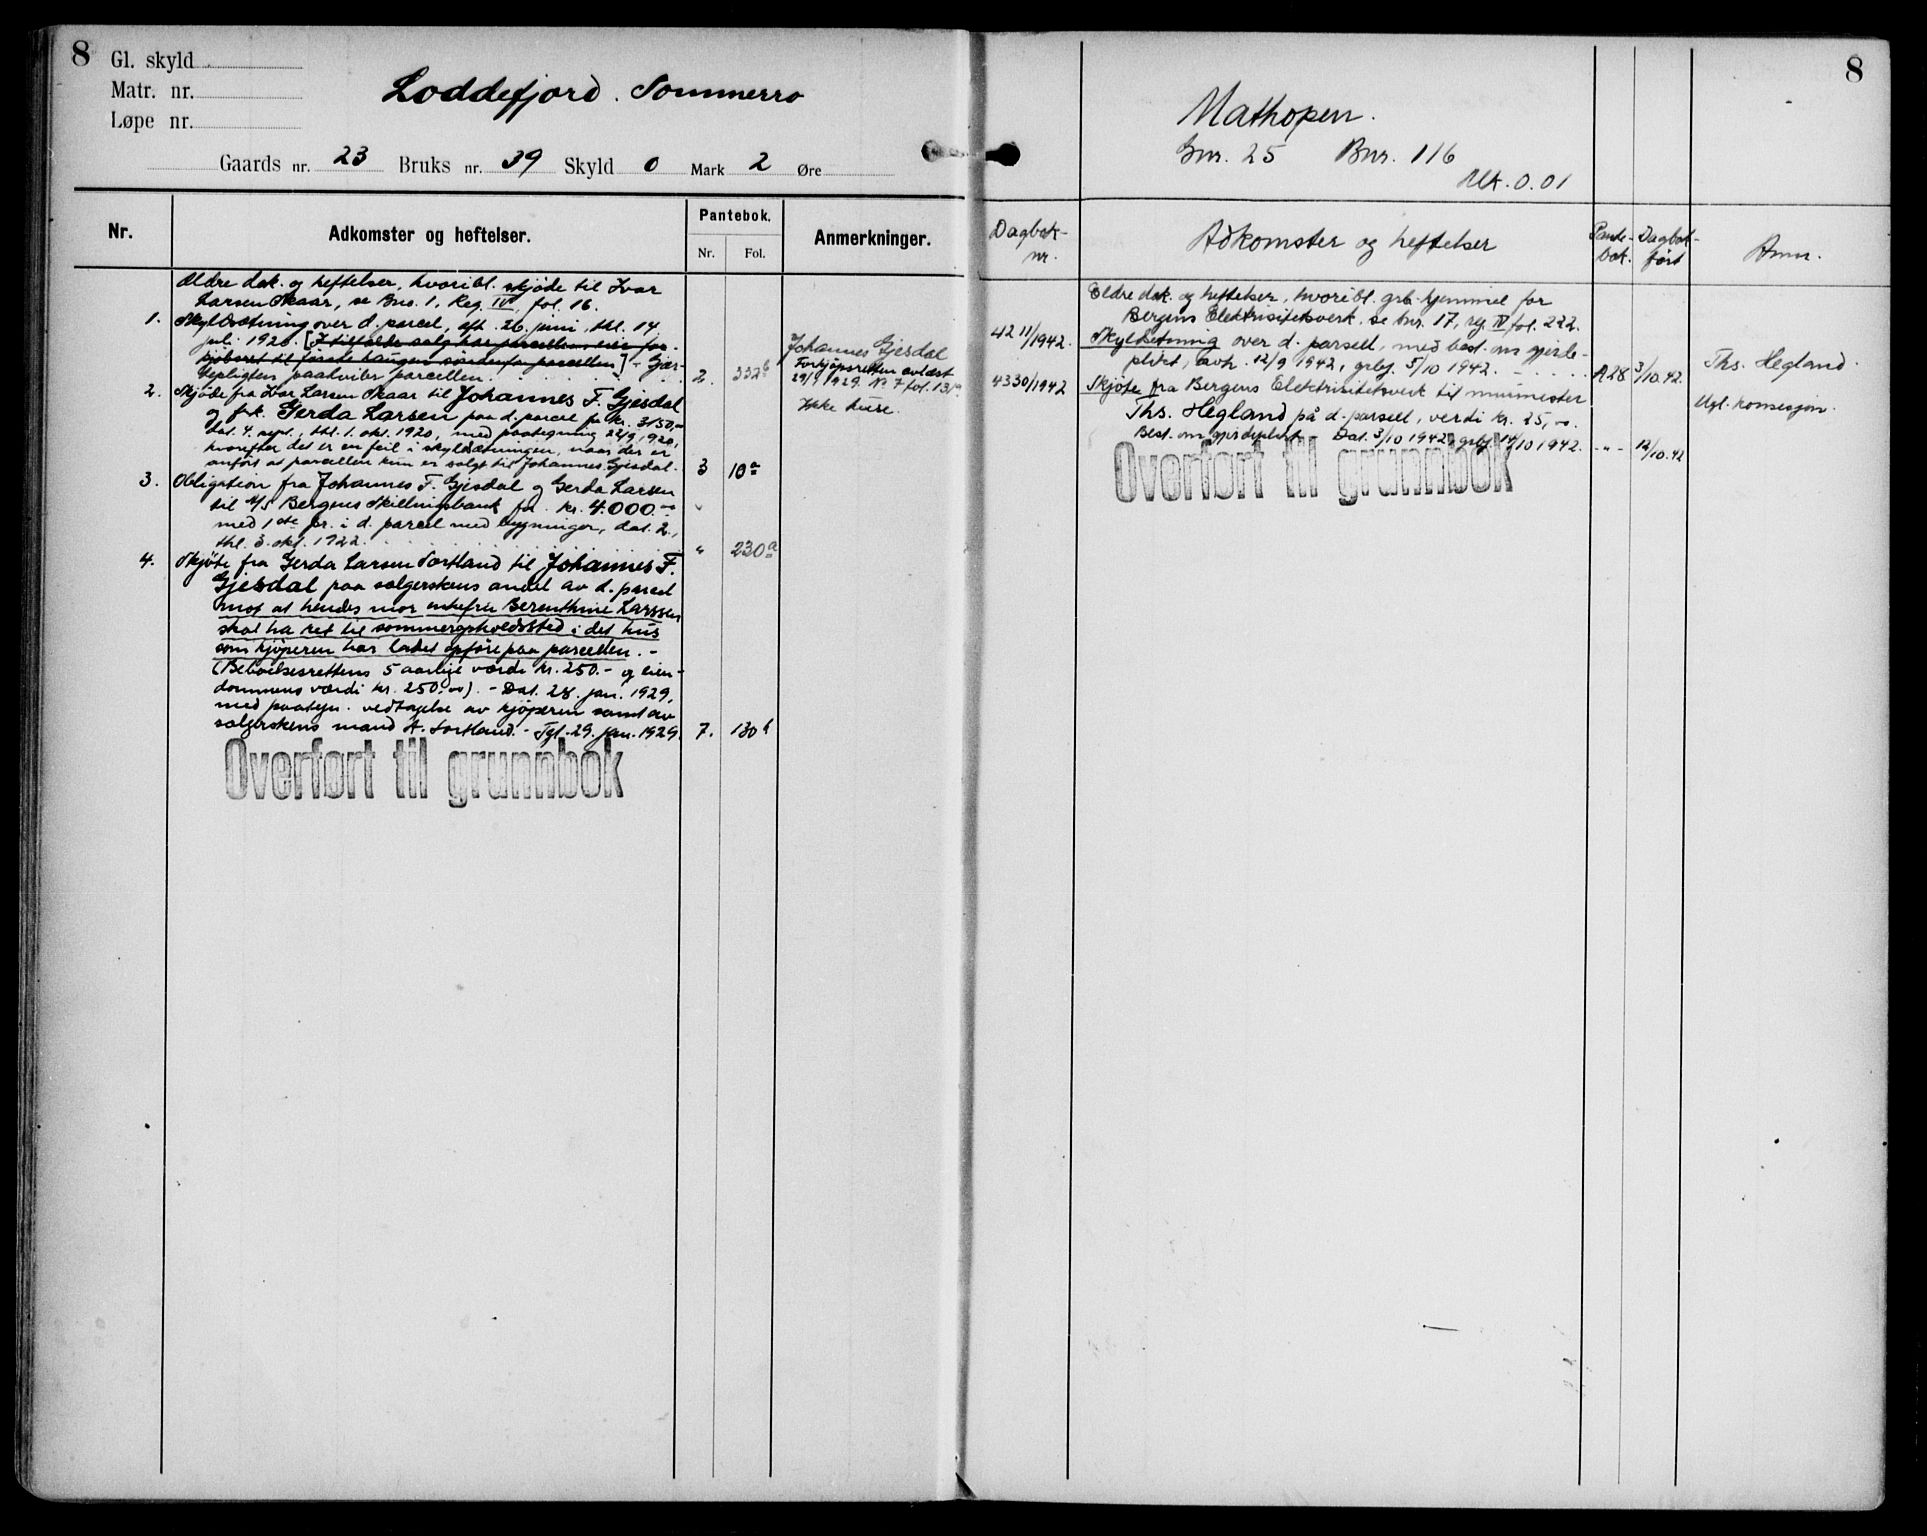 8
Gl. skyld
Matr. nr.
Løpe nr.
Loddefjord. Sommerro
Gaards nr. 23 Bruks nr. 39 Skyld 0 Mark 2 Øre
Nr.
Adkomster og heftelser.
Pantebok.
Nr. Fol.
Anmerkninger.
Ældre dok. og heftelser, hvoribl. skjøde til Ivar
Larsen Skaar, se Bno. 1, Reg. IV, fol. 16.
1. Skyldsætning over d. parcel, aft. 26. juni, thl. 14.
juli 1920. [I tilfælde salg har parcellens eier for-
kjøbsret til første haugen søndenfor parcellen] - Gjær-
depligten paahviler parcellen. 2. 332b
2. Skjøde fra Ivar Larsen Skaar til Johannes F. Gjesdal
og frk. Gerda Larsen paa d. parcel for kr. 3150,-
dat. 4. sept., thl. 1. okt. 1920, med paategning 22/9 1920,
hvorefter det er en feil i skyldsætningen, naar der er
anført at parcellen kun er solgt til Johannes Gjesdal. 3 10a
3. Obligation fra Johannes F. Gjesdal og Gerda Larsen
til A/S Bergens Skillingsbank for kr. 4.000.-
med 1ste pr. i d. parcel med bygninger, dat. 2.,
thl. 3. okt. 1922. " 230a
4. Skjøte fra Gerda Larsen Sortland til Johannes F.
Gjesdal paa sælgerskens andel av d. parcel
mot at hendes mor enkefru Berenthine Larssen
skal ha ret til sommeropholdssted i det hus
som kjøperen har latet opføre paa parcellen. -
(Beboelsesrettens 5 aarlige værdi kr. 250.- og eien-
dommens værdi kr. 250.00). - Dat. 28. jan. 1929,
med paategn. vedtagelse av kjøperen samt av
sælgerskens mand H. Sortland. - Tgl. 29. jan. 1929. 7. 130b
Overført til grunnbok
Johannes Gjesdal
Forkjøpsretten avlæst
29/1 1929. No 7 fol. 131a
Ikke huse.
8
Mathopen.
Gnr. 25 Bnr. 116
Mk. 0.01
Dagbok-
nr.
Adkomster og heftelser
Pante-
bok.
Dagbok-
ført
Anm.
Eldre dok. og heftelser, hvoribl. grb. hjemmel for
Bergens Elektrisitetsverk, se bnr. 17, reg. IV fol. 222.
4211/1942. Skyldsetning over d. parsell, med best. om gjerde-
plikt, avh. 12/9 1942, grbf. 5/10 1942. A28 3/10.42.
4330/1942 Skjøte fra Bergens Elektrisitetsverk til murmester
Ths. Hegland på d. parsell, verdi kr. 25,00.
Best. om gjerdeplikt. - Dat. 3/10 1942, grbf. 14/10 1942. - " - 12/10.42
Overført til grunnbok
Ths. Hegland.
Ugl. konsesjon.